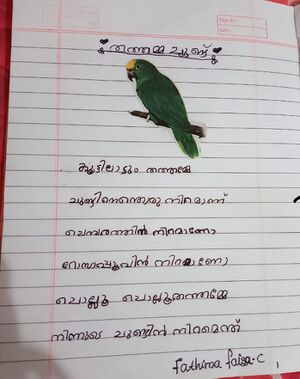 തത്തമ്മ ചുണ്ട്
കൂട്ടിലാട്ടും തത്തമ്മേ
ചുണ്ടിനെന്തൊരു നിറമാണ്
ചെമ്പരത്തിൻ നിറമാണോ
റോസാപ്പൂവിൻ നിറമാണോ
ചൊല്ലൂ ചൊല്ലൂതത്തമ്മേ
നിന്നുടെ ചുണ്ടിൻ നിറമെന്ത്
fathima faiza-C